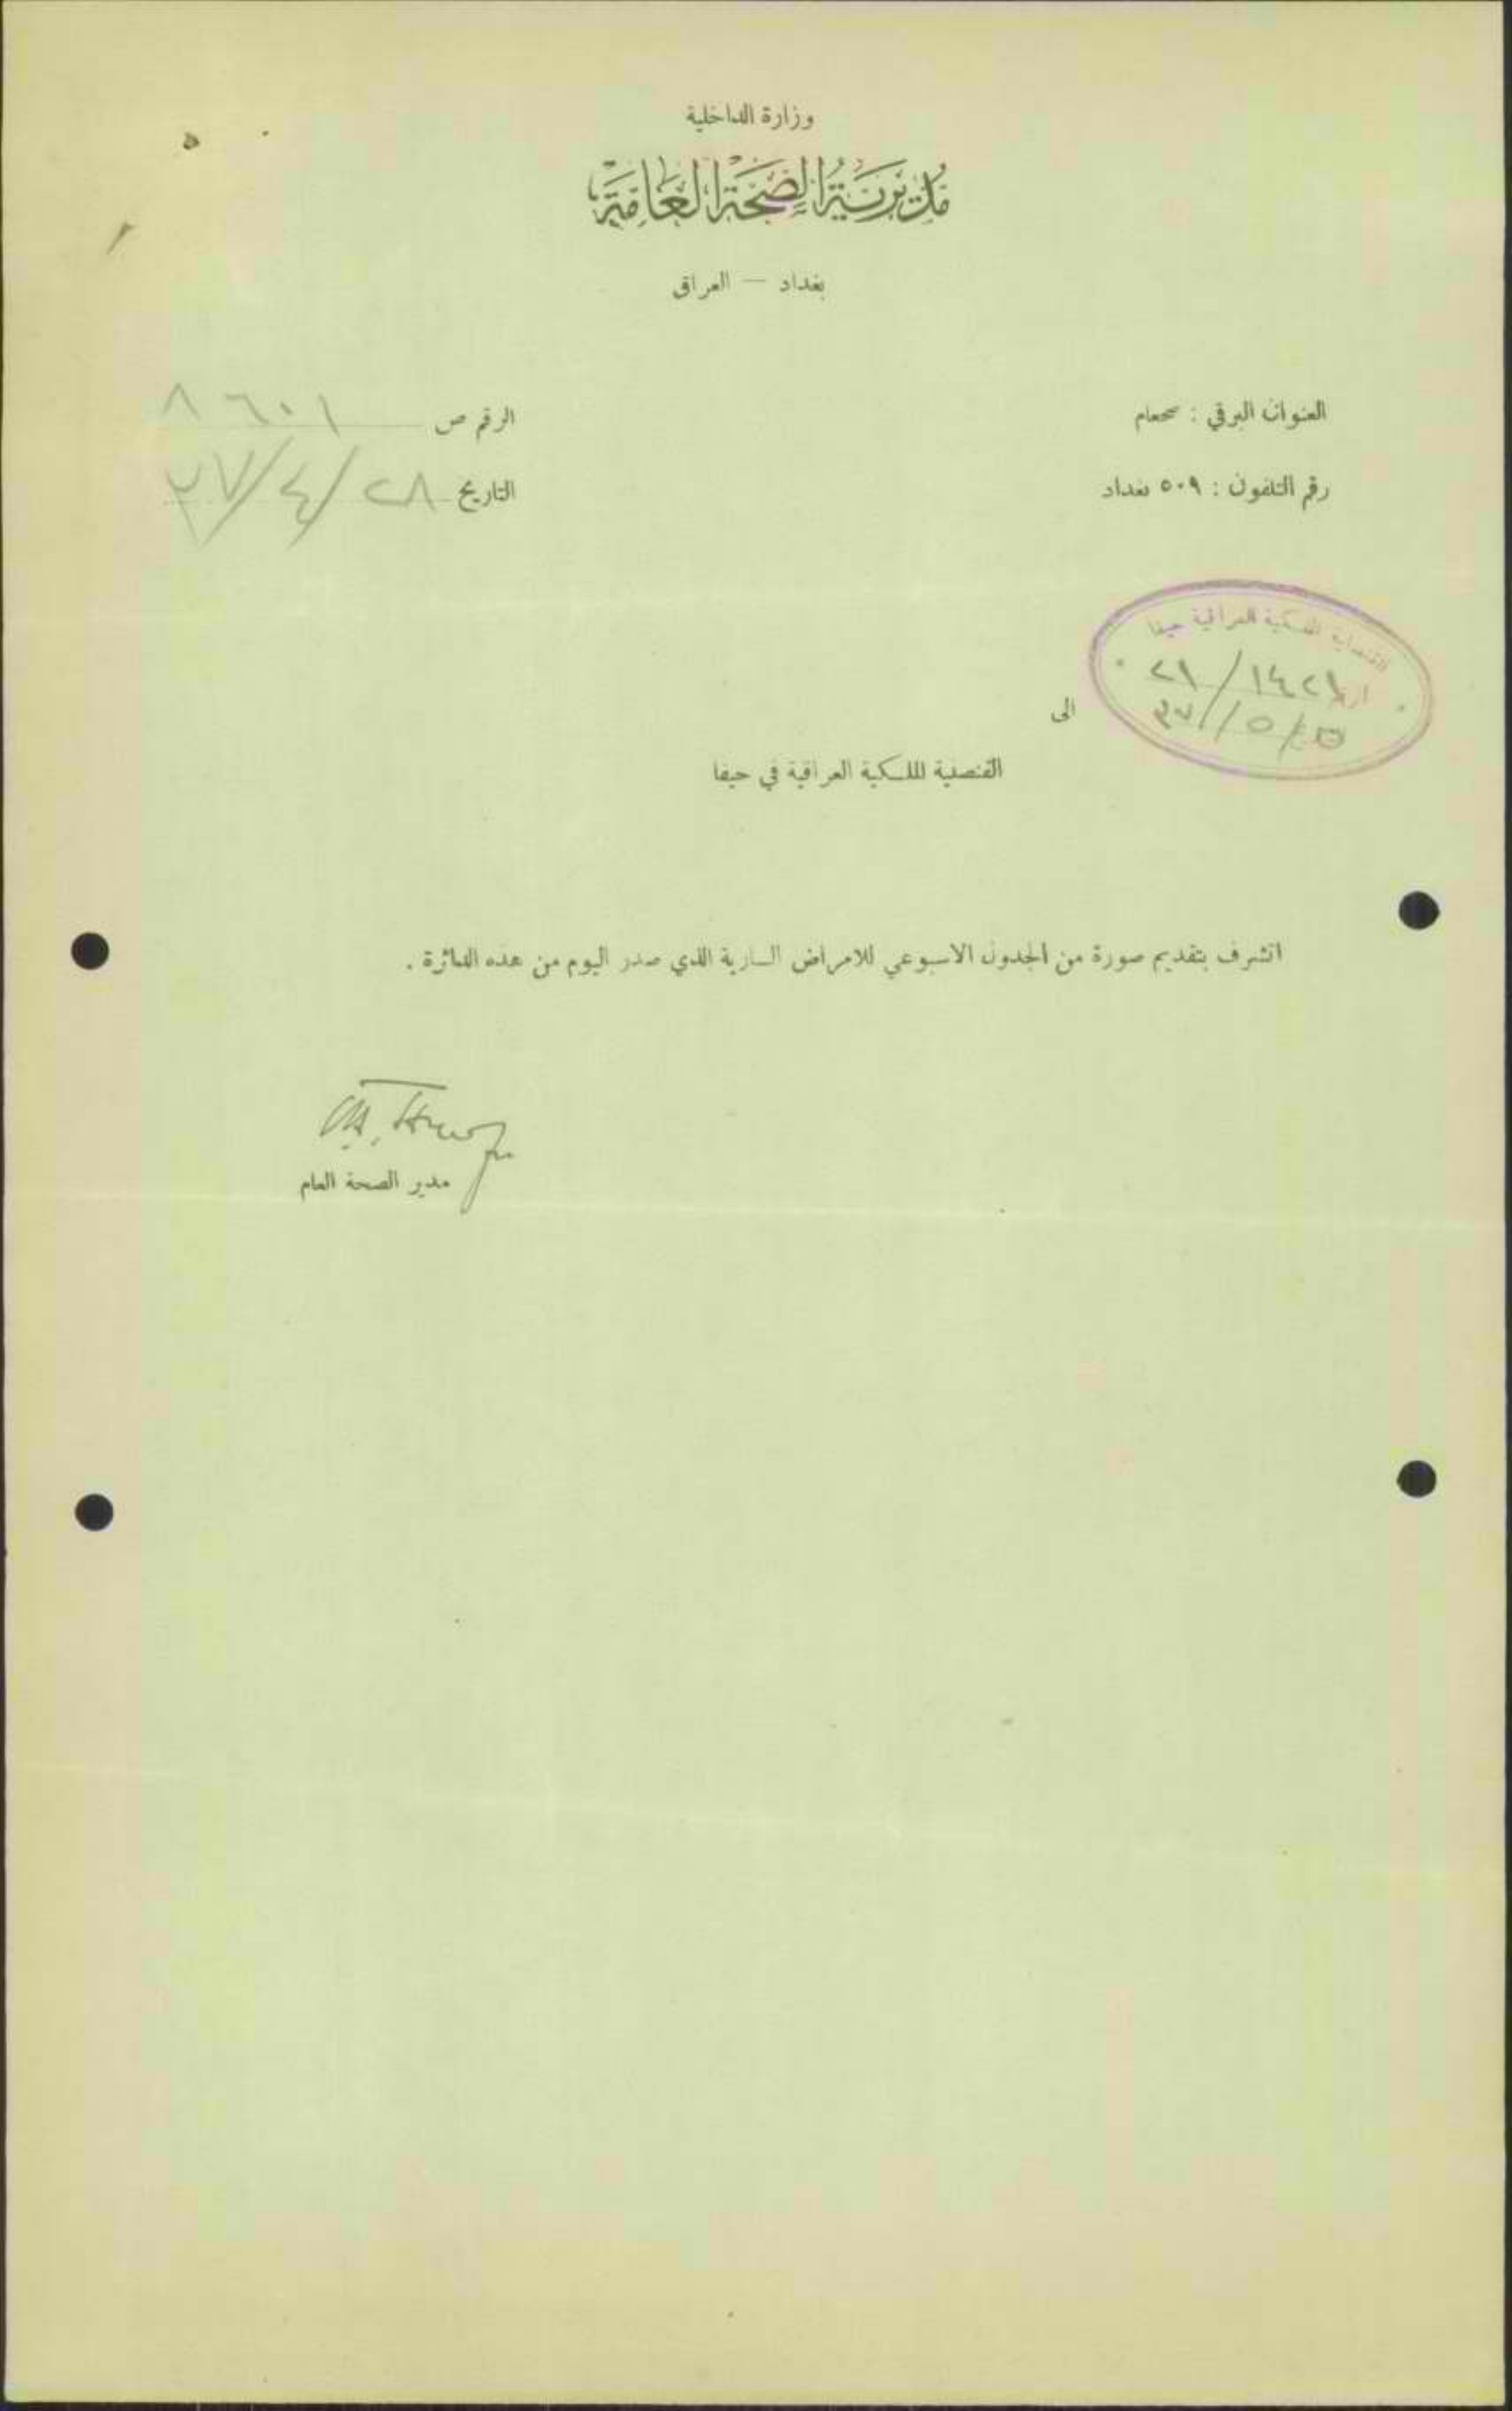 وزارة الداخلية
مديرية الصحة العامة
بغداد — العراق
العنوان البرقي : صحعام
الرقم ص ٨٦٠١
رقم التلفون : ٥٠٩ بغداد
التاريخ ٢٨/٤/٣٧
القنصلية الملكية العراقية حيفا
الى
القنصلية الملكية العراقية في حيفا
اتشرف بتقديم صورة من الجدول الاسبوعي للامراض السارية الذي صدر اليوم من هذه الدائرة .
مدير الصحة العام